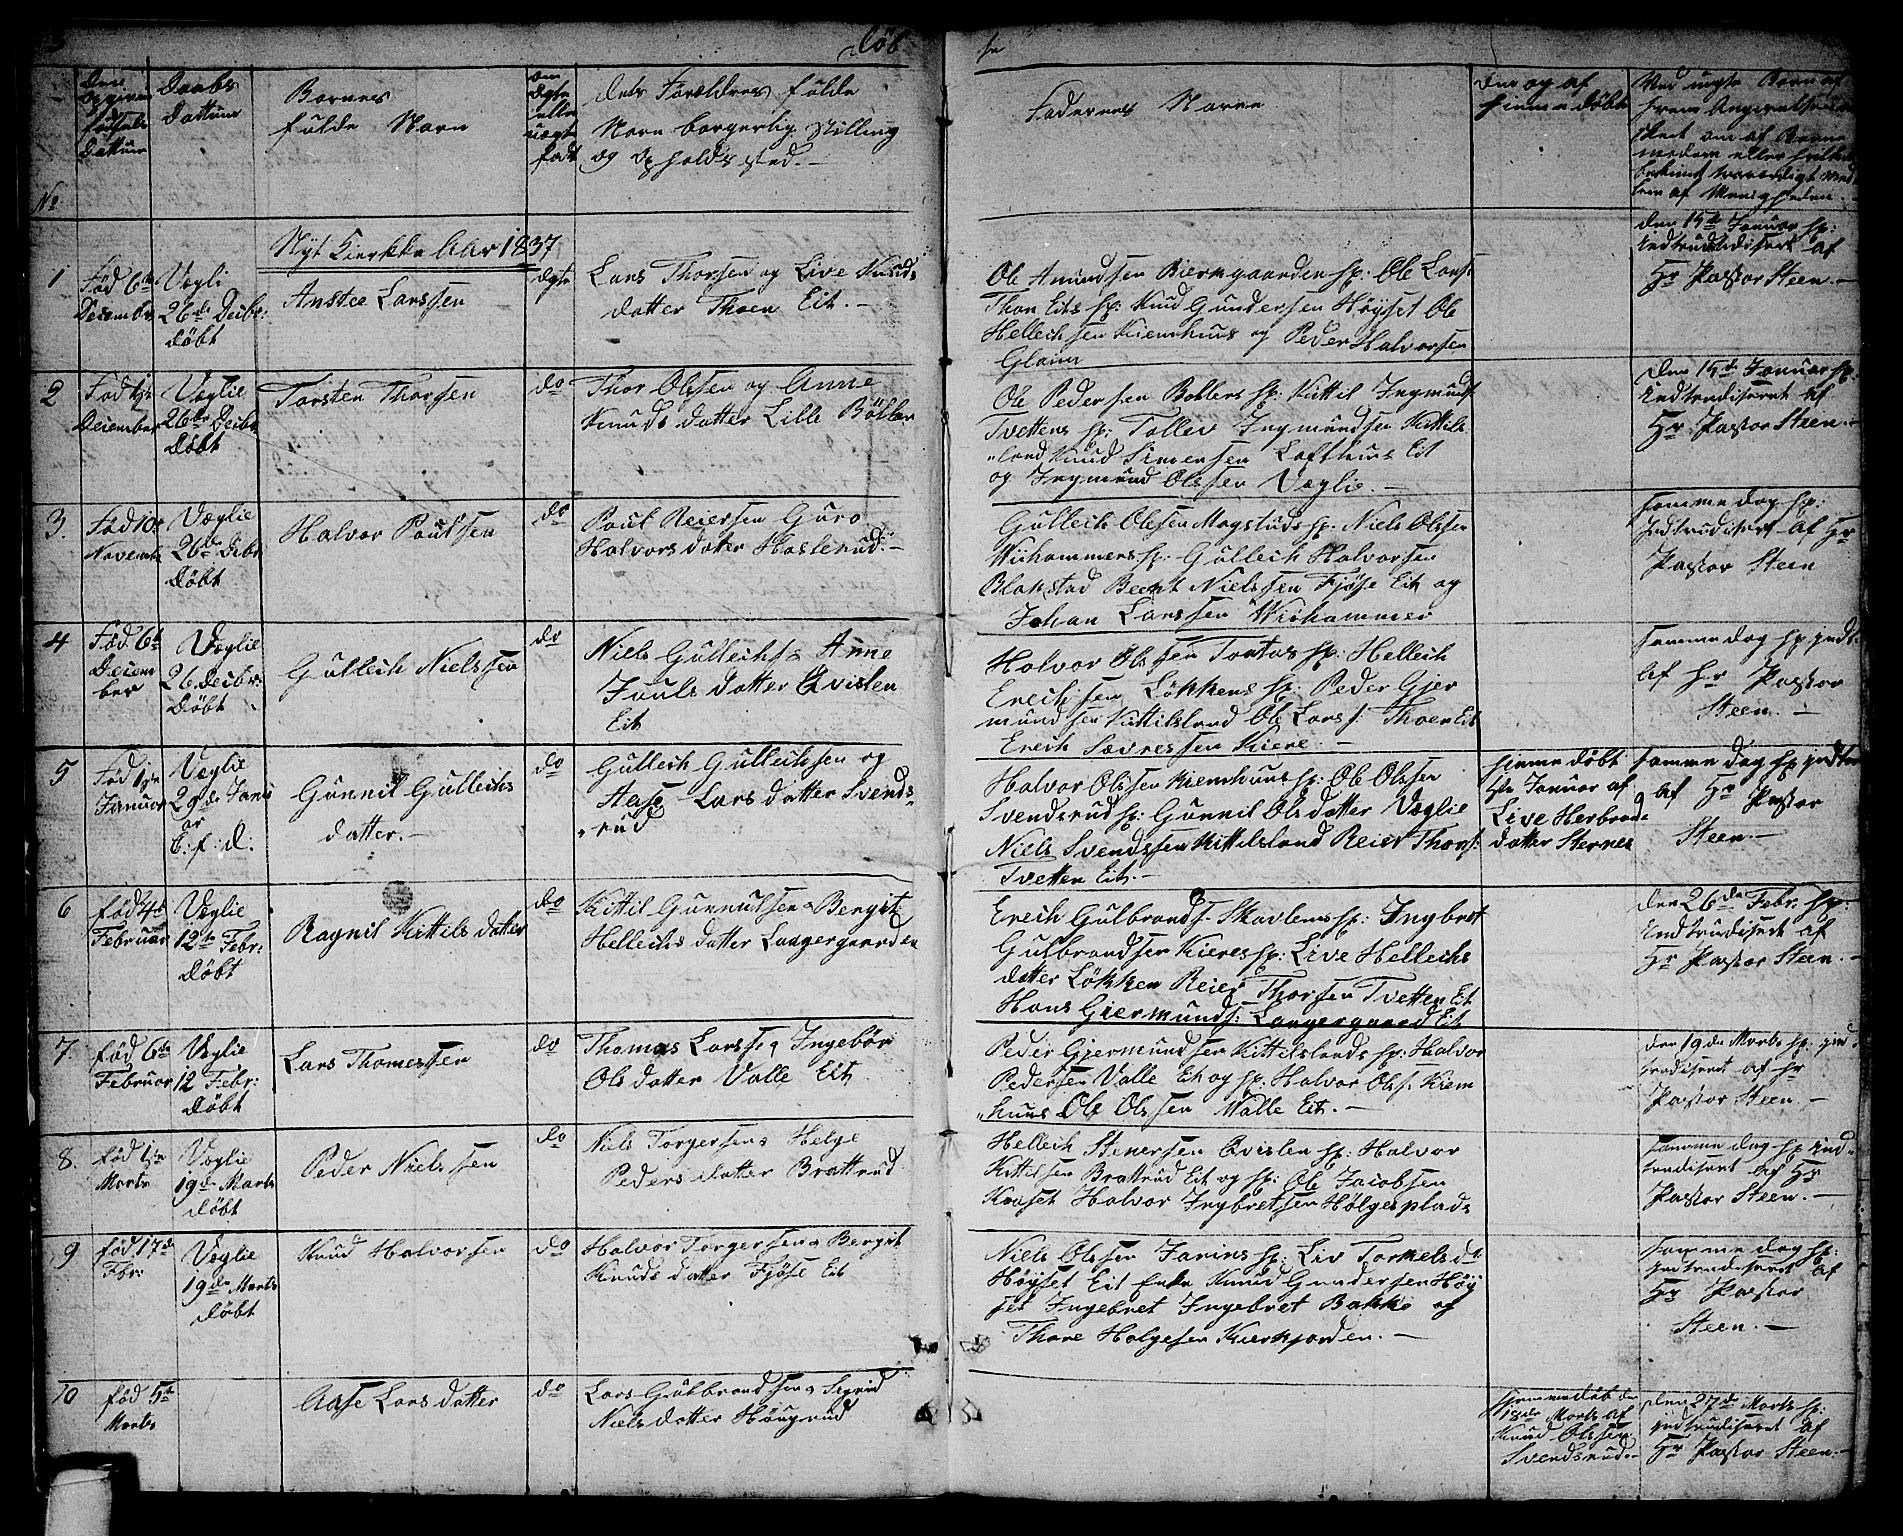 Døb
te
No
Den
Opgivne
fødsels
Dattum
Daabs
Dattum
Barnes
fulde Navn
Om
Ægte
eller
uægte
født
Dets Forældres fulde
Navn borgerlig Stilling
og Opholds sted. –
Fadernes Navne
hjemme døbt
Nyt Kierkke Aar 1837
1
Fød 6te
December
Vægli
26de Decbr:
døbt
Anstee Larssen
Ægte
Lars Thorsen og Live Knuds
datter Thoen Eit. –
Ole Amundsen Biermgaarden sp: Ole Lars:
Thon Eits sp: Knud Gundersen Høyset Ole
Hellechsen Kiemhuus og Peder Halvorsen
Glaim
den 15de Januar sp:
Indtrudiseret af
Hr Pastor Steen. –
2
Fød
December
Væglie
26de Decbr
døbt
Torsten Thorsen
do
Thor Olssen og Anne
Knuds datter Lille Böhler
Ole Pedersen Bohlers sp: Kittil Ingmunds
Tvettens sp: Tollev Ingmundsen Kittils
land Knud Simensen Lofthuus Eit
og Ingmund Olssen Væglie. –
den 15de Januar sp.
Indtrudiseret af
Hr Pastor Steen. –
3.
Fød 10e
November
Væglie
26de Decbr
døbt
Halvor Poulsen
do
Poul Reiersen Guro
Halvors datter Haslerud. –
Gullech Olssen Mogstuds sp: Niels Olssen
Wirhammers sp: Gullech Halvorsen
Blakstad Beent Nielssen Fjöse Eit og
Johan Larssen Wirhammer
samme dag sp:
Indtrudisert af Hr
Pastor Steen
4
Fød 6te
Decem
ber
Væglie
26 Decbr:
døbt
Gullech Nielssen
do
Niels Gullechs: a Anne
Jouls datter Qvislen
Eit
Halvor Olssen Toatas sp: Hellech
Erechsen Løkkens sp: Peder Gjer
mundsen Kittilsland Ole Lars: Thoen Eit
Erech Sævressen Kiere –
samme dag sp jndt
af Hr Pastor
Steen. –
5
Fød 1ste
Januar
Væglie
29de Janu
ar
E: f: d:
Gunnil Gullechs
datter. –
do
Gullech Gullechsen og
Aase Lars datter Svends
rud
Halvor Olssen Kiemhuus sp: Ole Olssen
Svendsrud sp: Gunnil Ols datter Væglie
Niels Svendssen Kittilsland Reier Thors:
Tvetten Eit. –
hjemme døbt
Januar af
Live Herbrand
datter Sternes
samme dag sp jndtru
af Hr Pastor
Steen. –
6
fød 4de
Februar
Væglie
12te Febr:
døbt
Ragnil Kittils datter
do
Kittil Gunnulsen a Bergit
Hellechs datter Laagergaarden
Erech Gulbrands: Skavlens sp: Ingbret
Gulbrandsen Kieres sp: Live Hellechs
datter Løkken Reier Thorsen Tvetten Eit
Hans Giermunds: Langergaard Eit
den 26de Febr. sp:
Indtrudiseret af
Hr Pastor Steen. –
7.
fød 6te
Februar
Væglie
12 Febr:
døbt
Lars Thomessen
do
Thomas Larss: a Ingebör
Ols datter Valle Eit
Peder Gjermundsen Kittilslands sp: Halvor
Pedersen Valle Eit og sp: Halvor Olss: Kiem
huus Ole Olssen Walle Eit. –
den 19de Marts sp: ind
trudiseret af Hr
Pastor Steen. –
8.
fød 1ste
Marts
Væglie
19de Marts
døbt
Peder Nielssen
do
Niels Torgersen a Helge
Peders datter Brattrud
Hellech Stenersen Qvislen sp: Halvor
Kittilsen Brattrud Eit og sp: Ole Jacobsen
Kraaset Halvor Ingbretsen Hölgesplads
samme dag sp ind
trudiseret af Hr
Pastor Steen. –
9
fød 17de
Fbr:
Væglie
19de Marts
døbt
Knud Halvorsen
do
Halvor Torgersen a Bergit
Knuds datter Fjöse Eit
Niels Olssen Jarins sp: Liv Torkels d:
Höyset Eit Enke Knud Gundersen Höy
set Ingebret Ingebret Bakke af
Thore Holgesen Kierkjorden. –
samme dag sp:
Indtrudiseret af
Hr Pastor
Steen. –
10
fød 5te
Marts
Aase Lars datter
do
Lars Gulbrandsen a Sigrid
Niels datter Höugrud
hjemme døb den
18de Marts af
Knud Olssen
Svendsrud –
den 27de Marts sp:
indtrudiseret af
Hr Pastor Steen. –